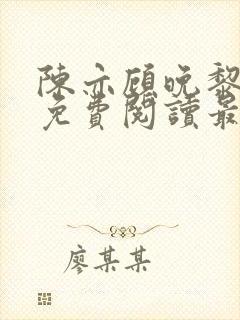 陳亦顧晚黎
免費閱讀最
廖某某